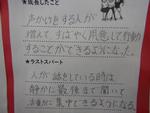 ★成長したこと
声かけをする人が
増えて、すばやく用意して行動
することができるようになった。
★ラストスパート
人が話をしている時は
静かに最後まで聞いて
集中できるようになる